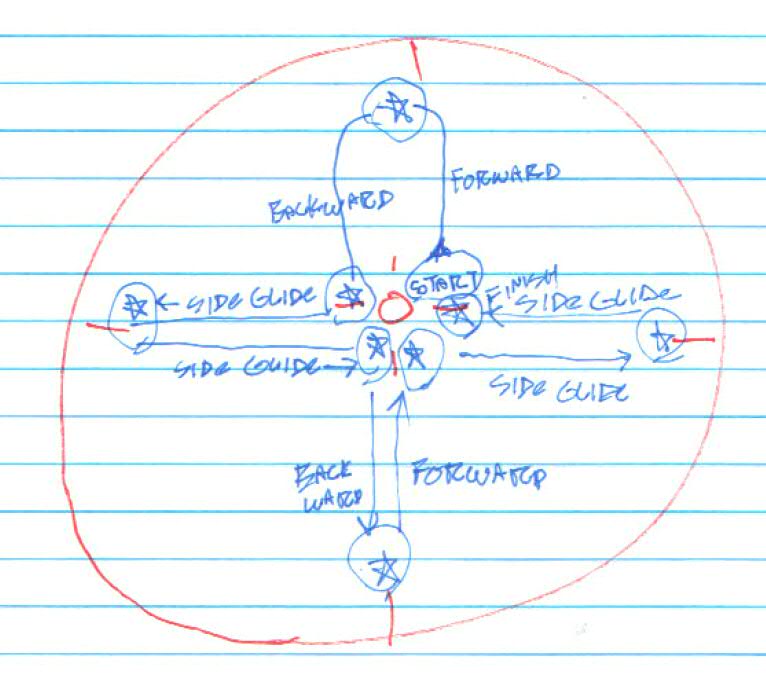 FORWARD
BACKWARD
START
FINISH
SIDE GLIDE
SIDE GLIDE
SIDE GLIDE
SIDE GLIDE
BACK
WARD
FORWARD